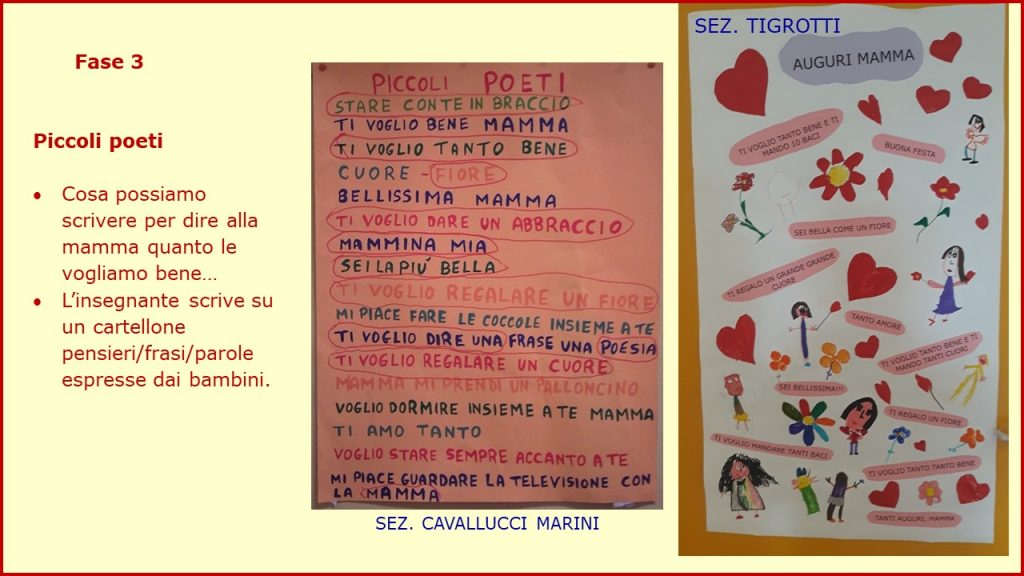 Fase 3
Piccoli poeti
• Cosa possiamo
scrivere per dire alla
mamma quanto le
vogliamo bene…
• L'insegnante scrive su
un cartellone
pensieri/frasi/parole
espresse dai bambini.
PICCOLI POETI
STARE CON TE IN BRACCIO
TI VOGLIO BENE MAMMA
TI VOGLIO TANTO BENE
CUORE - FIORE
BELLISSIMA MAMMA
TI VOGLIO DARE UN ABBRACCIO
MAMMINA MIA
SEI LA PIU' BELLA
TI VOGLIO REGALARE UN FIORE
MI PIACE FARE LE COCCOLE INSIEME A TE
TI VOGLIO DIRE UNA FRASE UNA POESIA
TI VOGLIO REGALARE UN CUORE
MAMMA MI PRENDI UN PALLONCINO
VOGLIO DORMIRE INSIEME A TE MAMMA
TI AMO TANTO
VOGLIO STARE SEMPRE ACCANTO A TE
MI PIACE GUARDARE LA TELEVISIONE CON
LA MAMMA
SEZ. CAVALLUCCI MARINI
SEZ. TIGROTTI
AUGURI MAMMA
TI VOGLIO TANTO BENE E TI
MANDO 10 BACI
BUONA FESTA
SEI BELLA COME UN FIORE
TI REGALO UN GRANDE GRANDE
CUORE
TANTO AMORE
TI VOGLIO TANTO BENE E TI
MANDO TANTI CUORI
SEI BELLISSIMA!!!
TI REGALO UN FIORE
TI VOGLIO MANDARE TANTI BACI
TI VOGLIO TANTO TANTO BENE
TANTI AUGURI, MAMMA